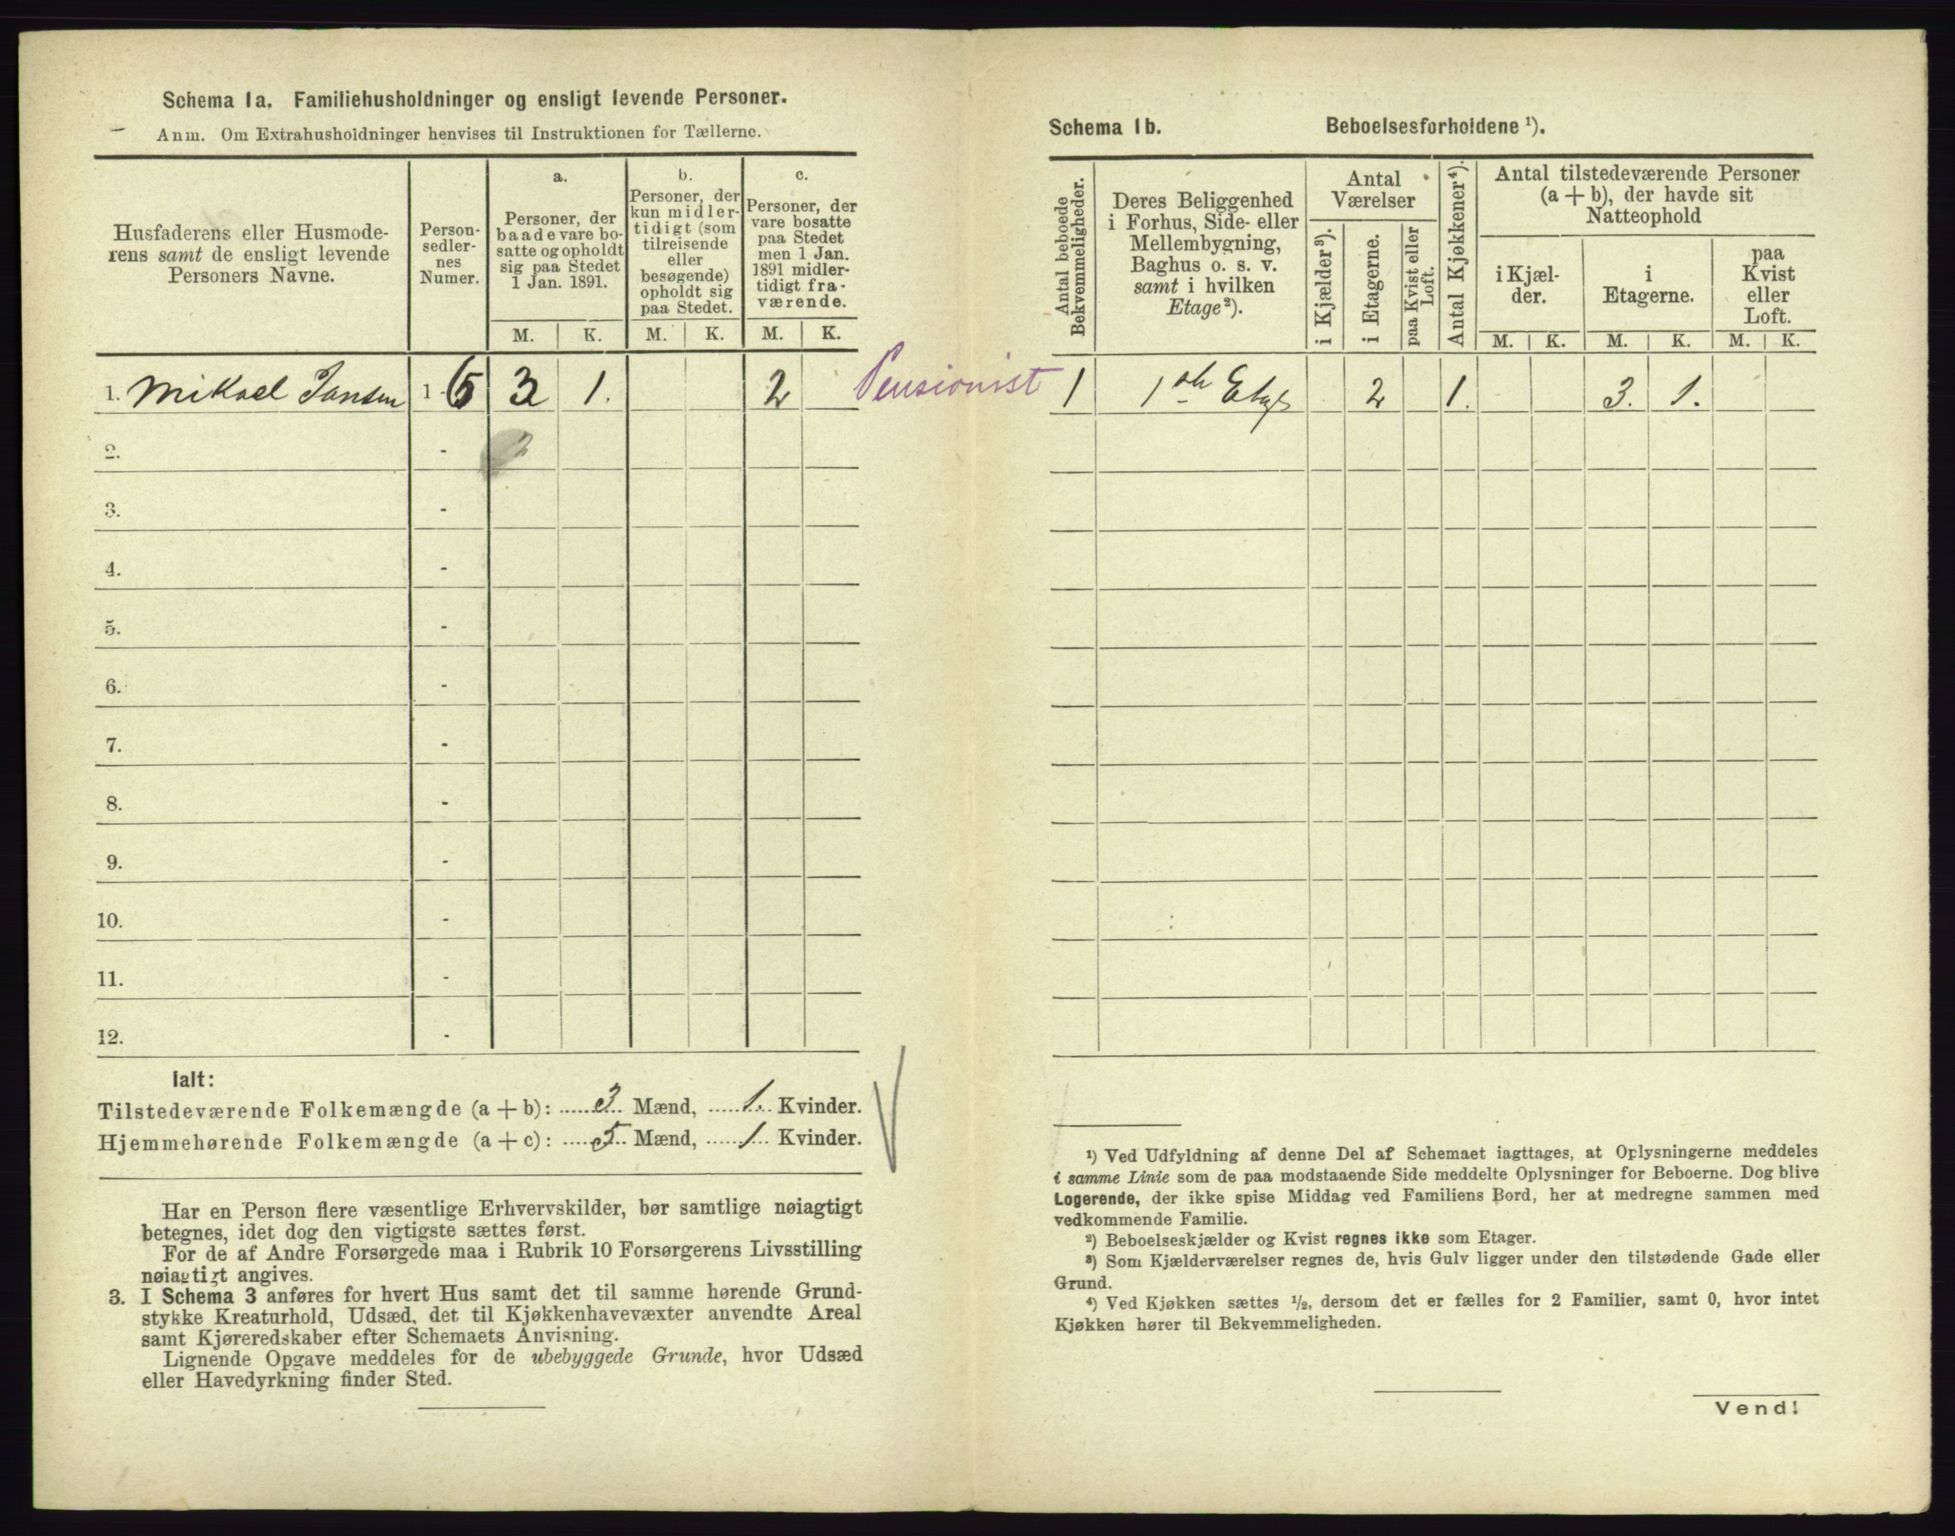 Schema 1a. Familiehusholdninger og ensligt levende Personer.
Anm. Om Extrahusholdninger henvises til Instruktionen for Tællerne.
Husfaderens eller Husmoderens samt de ensligt levende Personers Navne.
Personsedlernes Numer.
a.
Personer, der baade vare bosatte og opholdt sig paa Stedet 1 Jan. 1891.
b.
Personer, der kun midlertidigt (som tilreisende eller besøgende) opholdt sig paa Stedet.
c.
Personer, der vare bosatte paa Stedet men 1 Jan. 1891 midlertidigt fraværende.
M. K. M. K. M. K.
1. Mikael Jansen 1 - 6 3 1. 2 Pensionist
2. - 2
3. -
4. -
5. -
6. -
7. -
8. -
9. -
10. -
11. -
12. -
Ialt:
Tilstedeværende Folkemængde (a + b): 3 Mænd, 1. Kvinder.
Hjemmehørende Folkemængde (a + c): 5 Mænd, 1 Kvinder.
Har en Person flere væsentlige Erhvervskilder, bør samtlige nøiagtigt
betegnes, idet dog den vigtigste sættes først.
For de af Andre Forsørgede maa i Rubrik 10 Forsørgerens Livsstilling
nøiagtigt angives.
3. I Schema 3 anføres for hvert Hus samt det til samme hørende Grund-
stykke Kreaturhold, Udsæd, det til Kjøkkenhavevæxter anvendte Areal
samt Kjøreredskaber efter Schemaets Anvisning.
Lignende Opgave meddeles for de ubebyggede Grunde, hvor Udsæd
eller Havedyrkning finder Sted.
Schema 1b. Beboelsesforholdene ¹).
Antal beboede Bekvemmeligheder.
Deres Beliggenhed i Forhus, Side- eller Mellembygning, Baghus o. s. v. samt i hvilken Etage²).
Antal Værelser
i Kjælder³).
i Etagerne.
paa Kvist eller Loft.
Antal Kjøkkener⁴).
Antal tilstedeværende Personer (a + b), der havde sit Natteophold
i Kjælder.
i Etagerne.
paa Kvist eller Loft.
M. K. M. K. M. K.
1 1ste Etage 2 1. 3. 1.
¹) Ved Udfyldning af denne Del af Schemaet iagttages, at Oplysningerne meddeles
i samme Linie som de paa modstaaende Side meddelte Oplysninger for Beboerne. Dog blive
Logerende, der ikke spise Middag ved Familiens Bord, her at medregne sammen med
vedkommende Familie.
²) Beboelseskjælder og Kvist regnes ikke som Etager.
³) Som Kjælderværelser regnes de, hvis Gulv ligger under den tilstødende Gade eller
Grund.
⁴) Ved Kjøkken sættes ½, dersom det er fælles for 2 Familier, samt 0, hvor intet
Kjøkken hører til Bekvemmeligheden.
Vend!